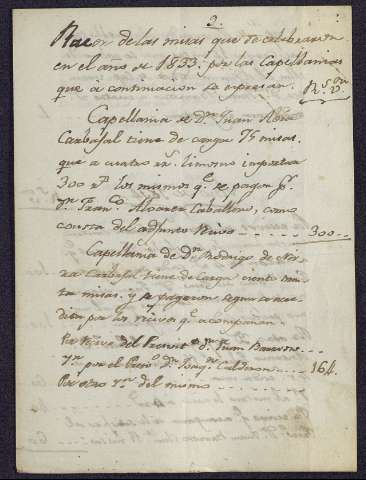 2.
Razon de las misas que se celebraron
en el año de 1833. por las Capellanias
que a continuacion se espresan.
Rs. von
Capellania de Dn. Juan
Carbajal tiene de carga 75 misas.
que a cuatro rs. limosna importan
300 rs. los mismos qe. se pagan
Dn. Franco. Alvarez Caballero, como
consta del adjunto Recivo - - - - 300 -
Capellania de Dn. Rodrigo de
Carbajal tiene de carga ciento
ta misas. y se pagaron segun
por los recivos qe. acompañan.
Por Recivo del Dn. Juan - - -
por el Dn. Joaqn. Calderon - - - 164.
Por otro del mismo - - - -